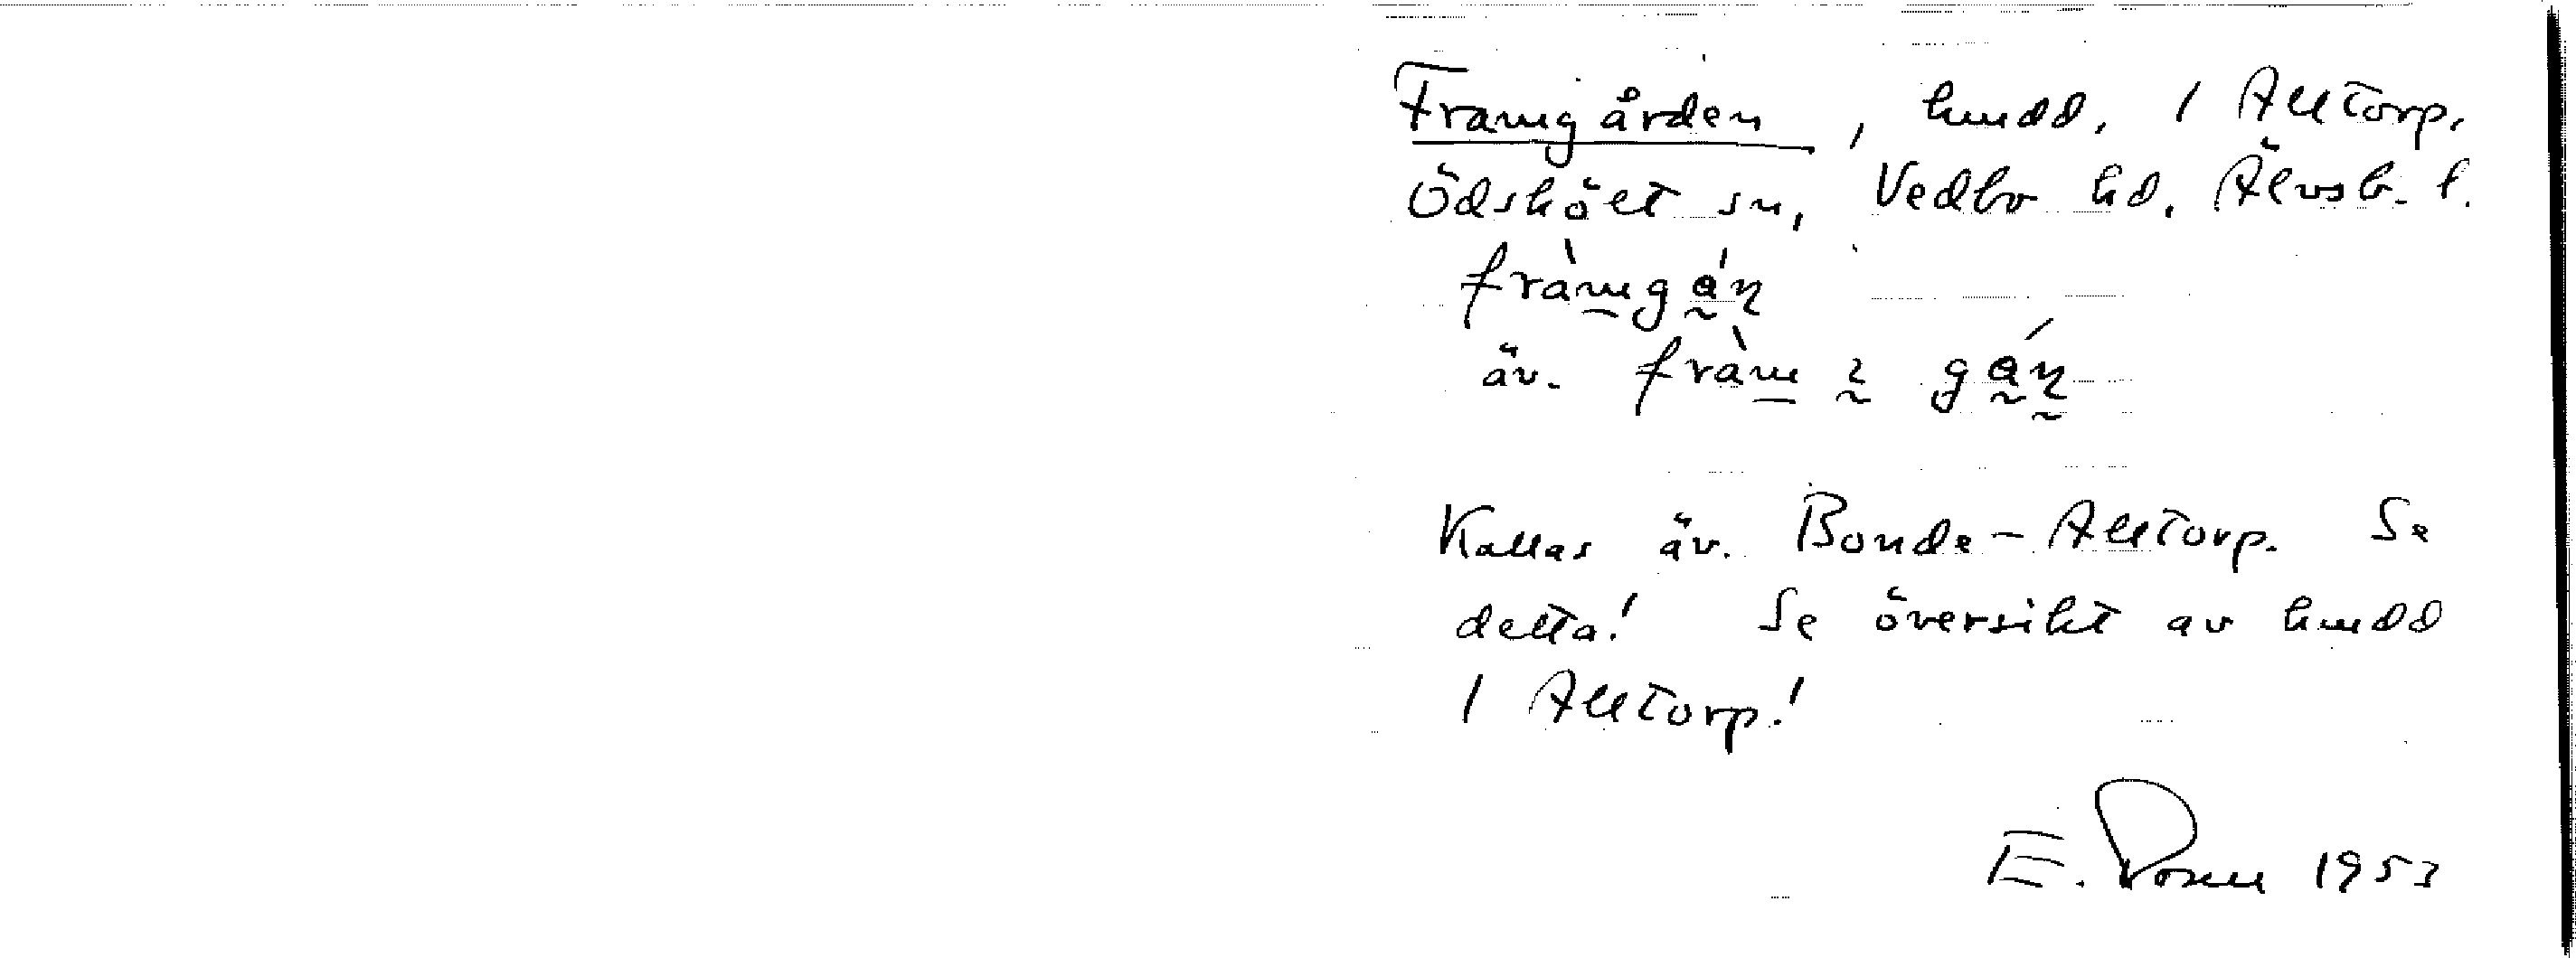 Framgården, hmdd, 1 Alltorp,
Ödskölt sn, Vedbo hd, Älvsb. l.
fràmgán
äv. fràm gán
Kallas äv. Bonde-Alltorp. Se
detta! Se översikt av hmdd
1 Alltorp!
E. 1953